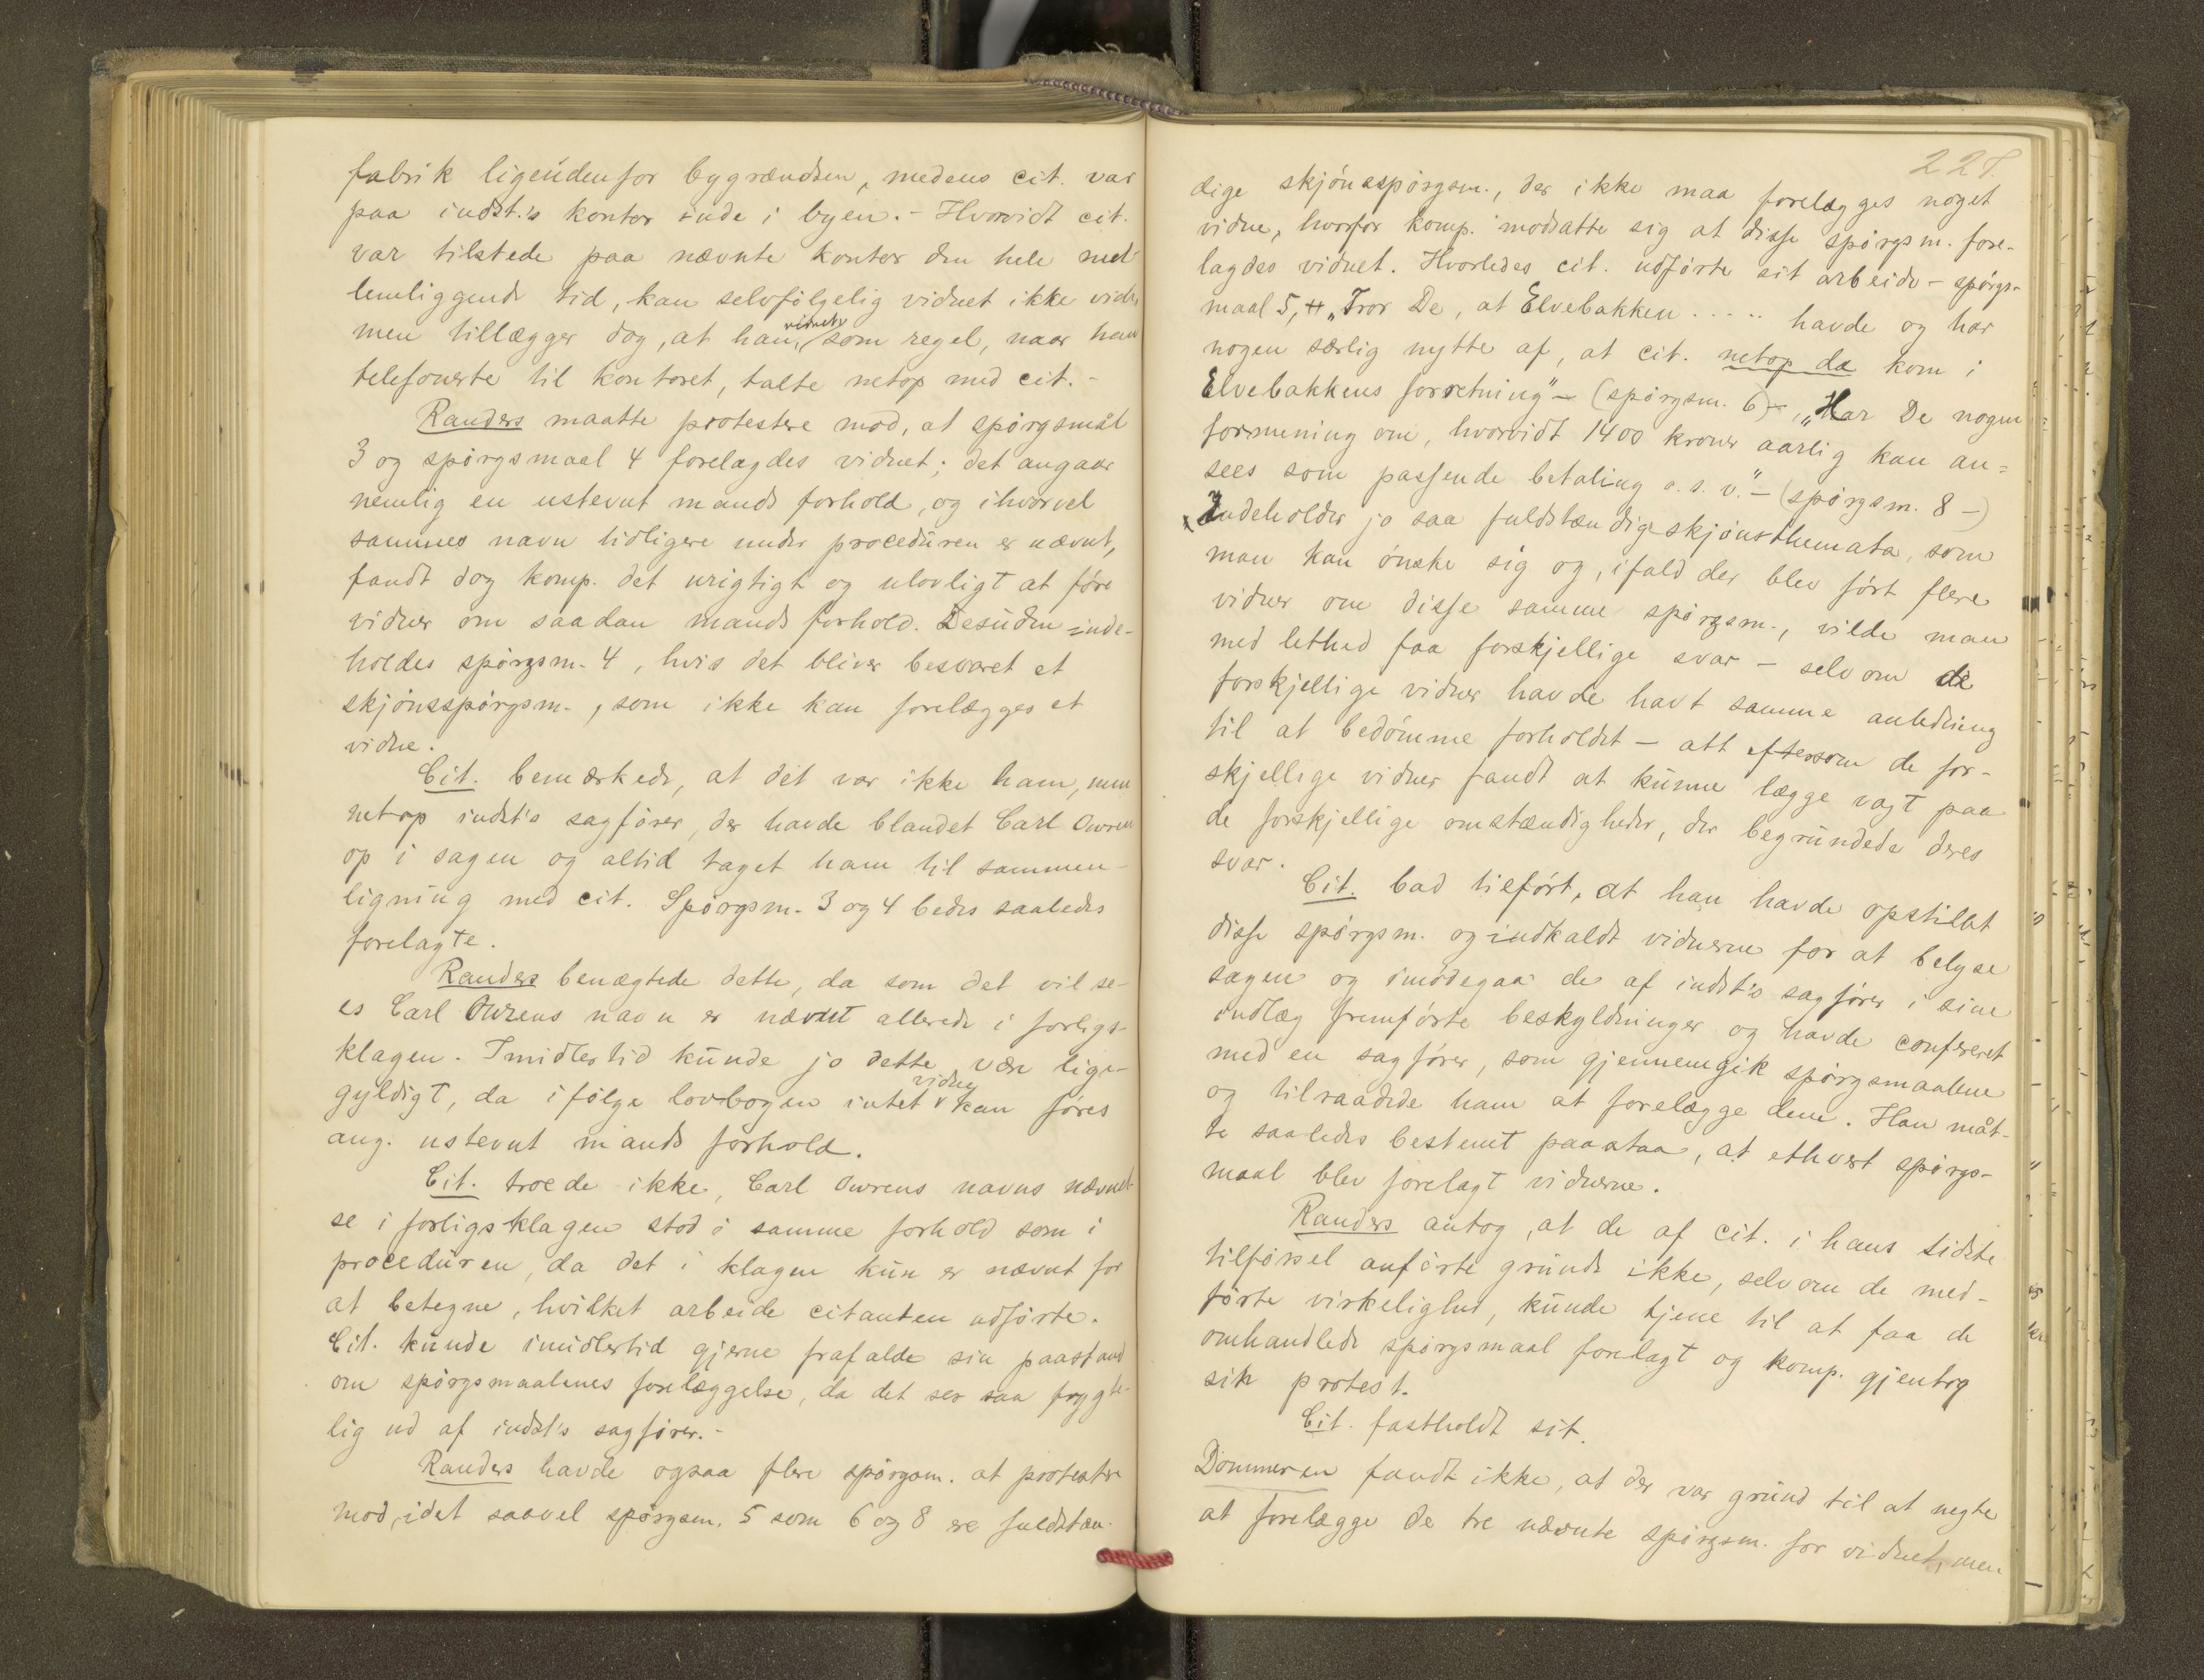 fabrik ligeudenfor bygrændsen, medens cit. var
paa indst.'s kontor inde i byen. - Hvorvidt cit.
var tilstede paa nævnte kontor den hele mel
lemliggende tid, kan selvfölgelig vidnet ikke vide,
men tillægger dog, at han, vidnet, som regel, naar han
telefonerte til kontoret, talte netop med cit. -
Randers maatte protestere mod, at spörgsmål
3 og spörgsmaal 4 forelagdes vidnet; det angaar
nemlig en ustevnt mands forhold, og ihvorvel
sammes navn tidligere under proceduren er nævnt,
fandt dog komp. det urigtigt og ulovligt at före
vidner om saadan mands forhold. Desuden inde-
holdes spörgsm. 4, hvis det bliver besvaret et
skjönsspörgsm., som ikke kan forelægges et
vidne.
Cit. bemærkede, at det var ikke ham, men
netop indst's sagförer, der havde blandet Carl Owren
op i sagen og altid taget ham til sammen-
ligning med cit. Spörgsm. 3 og 4 bedes saaledes
forelagte.
Randers benægtede dette, da som det vil se-
es Carl Owrens navn er nævnt allerede i forligs-
klagen. Imidlertid kunde jo dette være lige-
gyldigt, da ifölge lovbogen intet vidne kan föres
ang. ustevnt mands forhold.
Cit. troede ikke, Carl Owrens navns nævnel-
se i forligsklagen stod i samme forhold som i
proceduren, da det i klagen kun er nævnt for
at betegne, hvilket arbeide citanten udförte.
Cit. kunde imidlertid gjerne frafalde sin paastand
om spörgsmaalenes forelæggelse, da det ser saa frygte-
lig ud af indst's sagförer. -
Randers havde ogsaa flere spörgsm. at protestere
mod, idet saavel spörgsm. 5 som 6 og 8 ere fuldstæn-
227.
dige skjönsspörgsm., der ikke maa forelægges noget
vidne, hvorfor komp. modsatte sig at disse spörgsm. fore-
lagdes vidnet. Hvorledes cit. udförte sit arbeide - spörgs-
maal 5, "Tror De, at Elvebakken ..... havde og har
nogen særlig nytte af, at cit. netop da kom i
Elvebakkens forretning" - (spörgsm. 6) - "Har De nogen
formening om, hvorvidt 1400 kroner aarlig kan an=
sees som passende betaling o. s. v." - (spörgsm. 8 -)
Indeholder jo saa fuldstændige skjönsthemata, som
man kan önske sig og, ifald der blev fört flere
vidner om disse samme spörgsm., vilde man
med lethed faa forskjellige svar - selv om de
forskjellige vidner havde havt samme anledning
til at bedömme forholdet - alt eftersom de for-
skjellige vidner fandt at kunne lægge vagt paa
de forskjellige omstændigheder, der begrundede deres
svar.
Cit. bad tilfört, at han havde opstillet
disse spörgsm. og indkaldt vidnerne for at belyse
sagen og imödegaa de af indst's sagförer i sine
indlæg fremförte beskyldninger og havde confereret
med en sagförer, som gjennemgik spörgsmaalene
og tilraadede ham at forelægge dem. Han måt-
te saaledes bestemt paastaa, at ethvert spörgs-
maal blev forelagt vidnerne.
Randers antog, at de af cit. i hans sidste
tilförsel anförte grunde ikke, selv om de med-
förte virkelighed, kunde tjene til at faa de
omhandlede spörgsmaal forelagt og komp. gjentog
sin protest.
Cit. fastholdt sit.
Dommeren fandt ikke, at der var grund til at negte
at forelægge de tre nævnte spörgsm. for vidnet, men